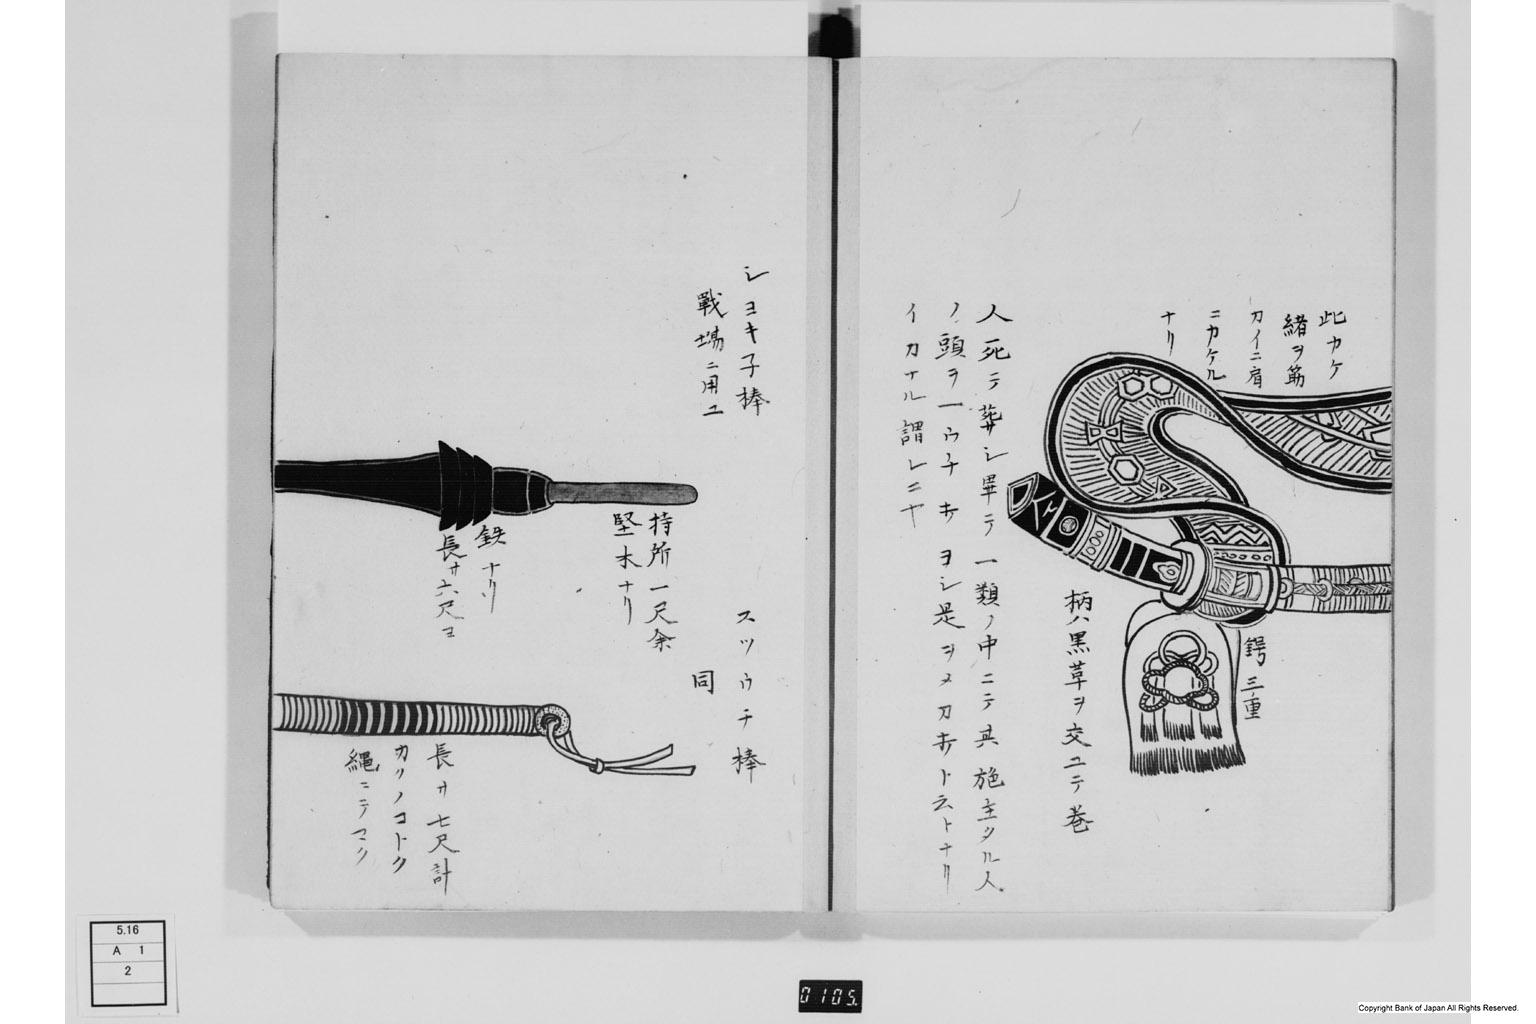 此カケ
緒ヲ筋
カイニ肩
ニカケル
ナリ
鍔三重
柄ハ黒革ヲ交ユテ巻
人死テ葬サシ畢テ一類ノ中ニテ其施主タル人
ノ頭ヲ一ウチホヨシ是ヲメカホト云トナリ
イカナル謂レニヤ
シヨキ子棒
戰場ニ用ユ
持所一尺余
堅木ナリ
鉄ナリ
長サ六尺ヨ
スツウチ棒
同
長サ七尺計
カクノコトク
縄ニテマク
5.16
A 1
2
0105.
Copyright Bank of Japan All Rights Reserved.